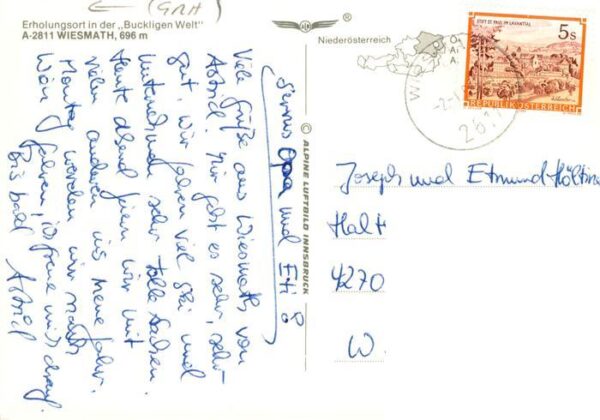 (GRH)
Erholungsort in der „Buckligen Welt"
A-2811 WIESMATH, 696 m
Niederösterreich
© ALPINE LUFTBILD INNSBRUCK
STIFT ST. PAUL IM LAVANTTAL
5s
REPUBLIK ÖSTERREICH
2811
Servus Opa und Eti!
Viele Grüße aus Wiesmath, von
Astrid. Mir geht es sehr, sehr
gut, wir fahren viel Ski und
unternehmen sehr tolle Sachen.
Heute abend feiern wir mit
vielen anderen ins neue Jahr.
Montag werden wir nach
Wien fahren, ich freue mich drauf.
Bis bald Astrid
Joseph und Etmund
Halt
4270
W.